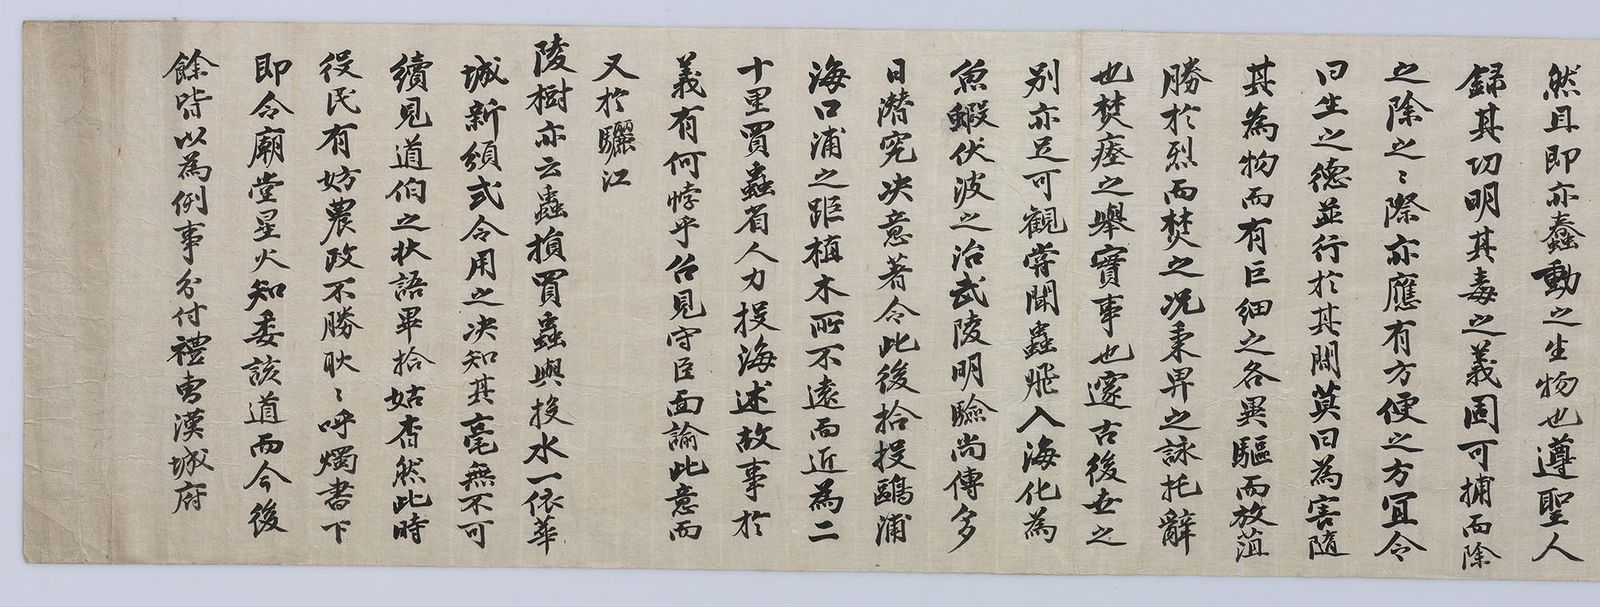 然且即亦蠢動之生物也遵聖人
錄其功明其毒之義固可捕而除
之除之〻際亦應有方便之方宜令
曰生之德並行於其間莫曰為害隨
其為物而有巨細之各異驅而放菹
勝於烈而焚之況秉畀之詠托辭
也焚瘞之舉實事也邃古後世之
別亦足可觀嘗聞蟲飛入海化為
魚蝦伏波之治武陵明驗尚傳多
日潛究決意著令此後拾投鷗浦
海口浦之距植木所不遠而近為二
十里買蟲省人力投海述故事於
義有何悖乎台見守臣面諭此意而
又於驪江
陵樹亦云蟲損買蟲與投水一依華
城新頒式令用之決知其毫無不可
續見道伯之狀語畢拾姑杳然此時
役民有妨農政不勝耿〻呼燭書下
即令廟堂星火知委該道而今後
餘皆以為例事分付禮曹漢城府